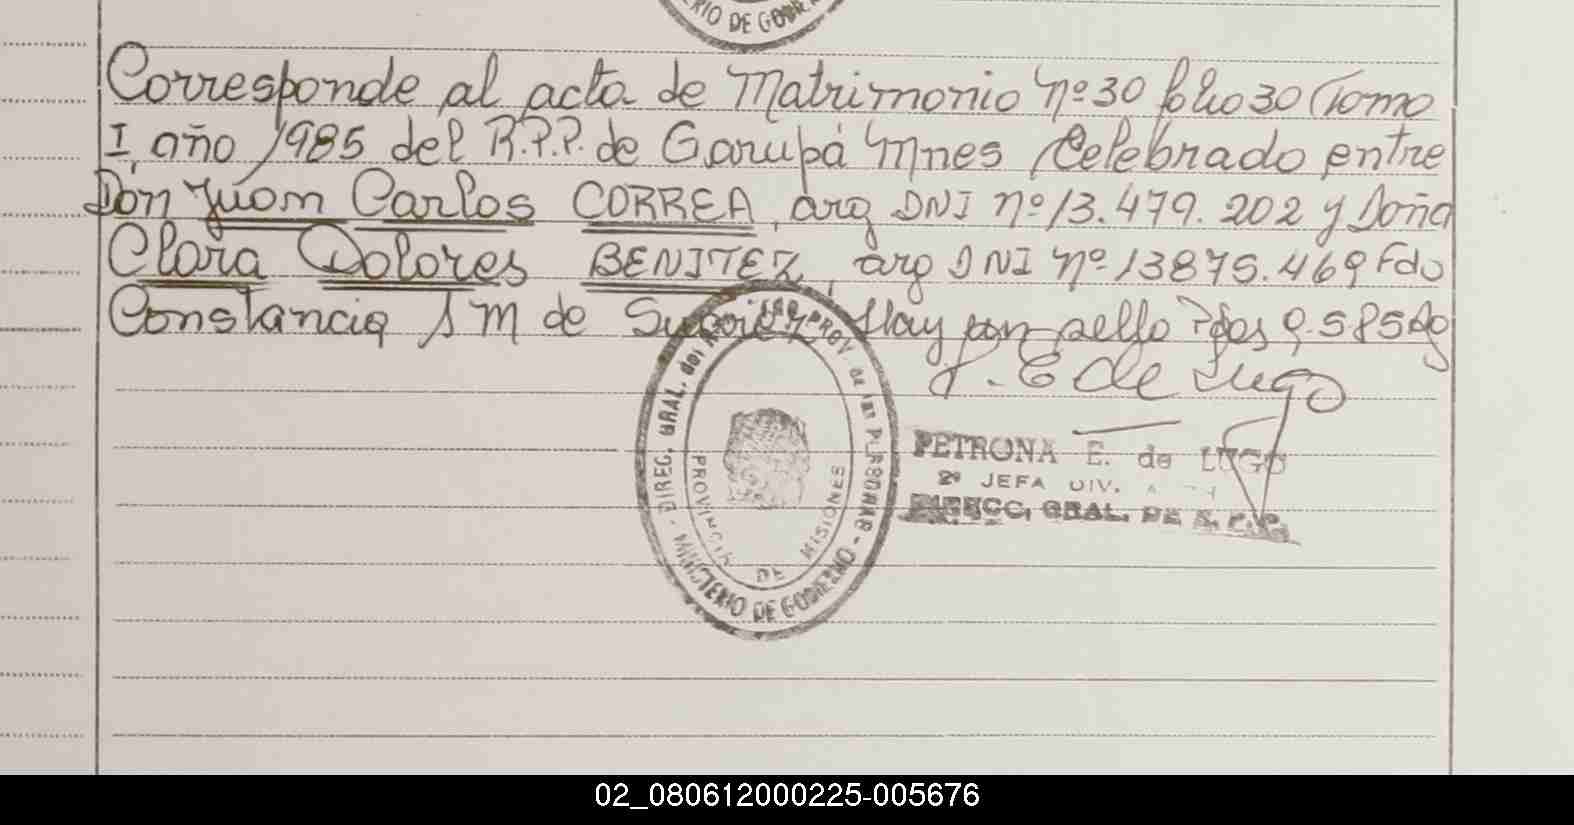 RIO DE GOBIER
Corresponde al acta de Matrimonio nº 30 folio 30 Tomo
I, año 1985 del R.P.P. de Garupá Mnes Celebrado entre
Don Juan Carlos CORREA, arg DNI nº 13.479.202 y Doña
Clara Dolores BENITEZ, arg DNI nº 13875.469 Fdo
Constancia S M de Hay un sello
P. E de Lugo
DIREC. GRAL. DEL PROV. DE LAS PERSONAS
PROVINCIA DE MISIONES
MINISTERIO DE GOBIERNO
PETRONA E. de LUGO
2º JEFA DIV.
DIRECC. GRAL. DE R. P. P.
02_080612000225-005676